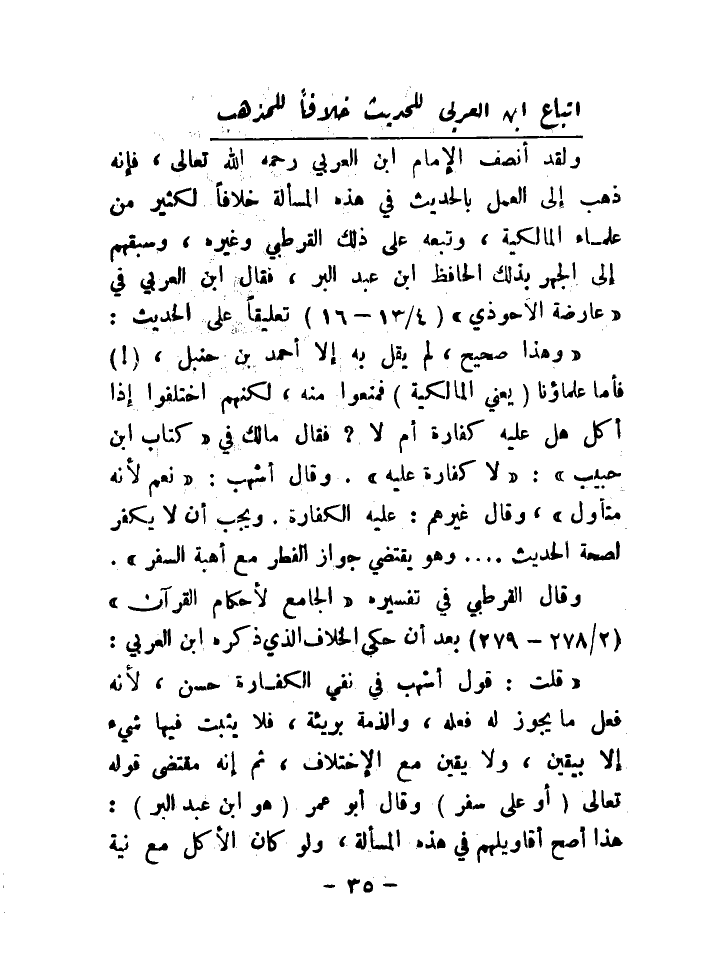 اتباع ابن العربي للحديث خلافاً للمذهب
ولقد أنصف الإمام ابن العربي رحمه الله تعالى ، فإنه
ذهب إلى العمل بالحديث في هذه المسألة خلافاً لكثير من
علماء المالكية ، وتبعه على ذلك القرطبي وغيره ، وسبقهم
إلى الجهر بذلك الحافظ ابن عبد البر ، فقال ابن العربي في
« عارضة الأحوذي » ( ١٣/٤ – ١٦ ) تعليقاً على الحديث :
« وهذا صحيح ، لم يقل به إلا أحمد بن حنبل ، (!)
فأما علماؤنا ( يعني المالكية ) فمنعوا منه ، لكنهم اختلفوا إذا
أكل هل عليه كفارة أم لا ? فقال مالك في « كتاب ابن
حبيب » : « لا كفارة عليه » . وقال أشهب : « نعم لأنه
متأول » ، وقال غيرهم : عليه الكفارة . ويجب أن لا يكفر
لصحة الحديث .... وهو يقتضي جواز الفطر مع أهبة السفر » .
وقال القرطبي في تفسيره « الجامع لأحكام القرآن »
(٢٧٨/٢ – ٢٧٩) بعد أن حكي الخلاف الذي ذكره ابن العربي :
« قلت : قول أشهب في نفي الكفارة حسن ، لأنه
فعل ما يجوز له فعله ، والذمة بريئة ، فلا يثبت فيها شيء
إلا بيقين ، ولا يقين مع الإختلاف ، ثم إنه مقتضى قوله
تعالى ( أو على سفر ) وقال أبو عمر ( هو ابن عبد البر ) :
هذا أصح أقاويلهم في هذه المسألة ، ولو كان الأكل مع نية
– ٣٥ –